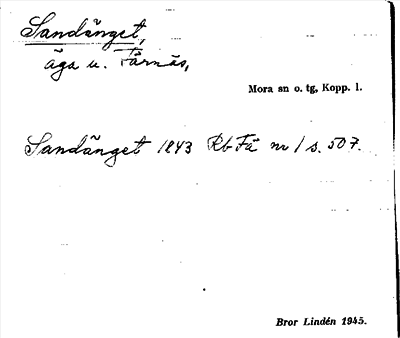 Sandänget,
äga u. Färnäs,
Mora sn o. tg, Kopp. l.
Sandänget 1843 Rb Fä nr 1 s. 507.
Bror Lindén 1945.